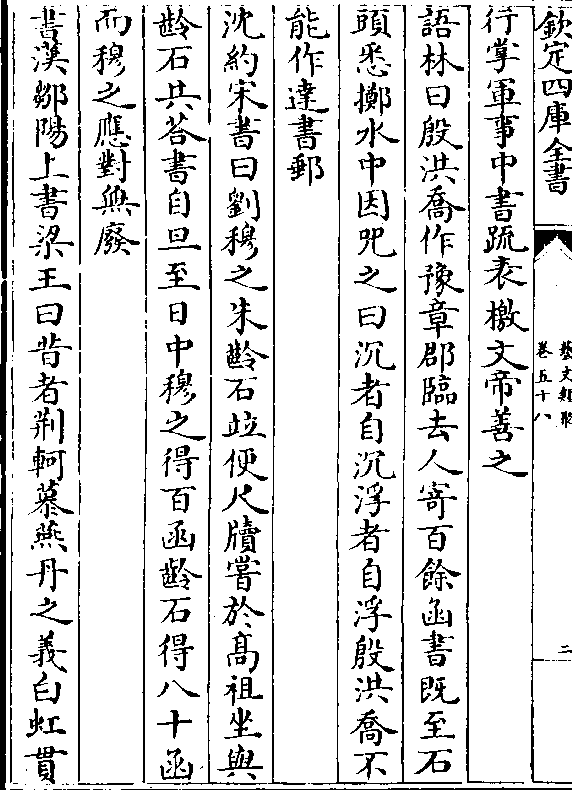 欽定四庫全書
藝文類聚
卷五十八
二
行掌軍事中書疏表檄文帝善之
語林曰殷洪喬作豫章郡臨去人寄百餘函書既至石
頭悉擲水中因咒之曰沉者自沉浮者自浮殷洪喬不
能作達書郵
沈約宋書曰劉穆之朱齡石竝便尺牘嘗於髙祖坐與
齡石共荅書自旦至日中穆之得百函齡石得八十函
而穆之應對無廢
書漢鄒陽上書梁王曰昔者荆軻慕燕丹之義白虹貫